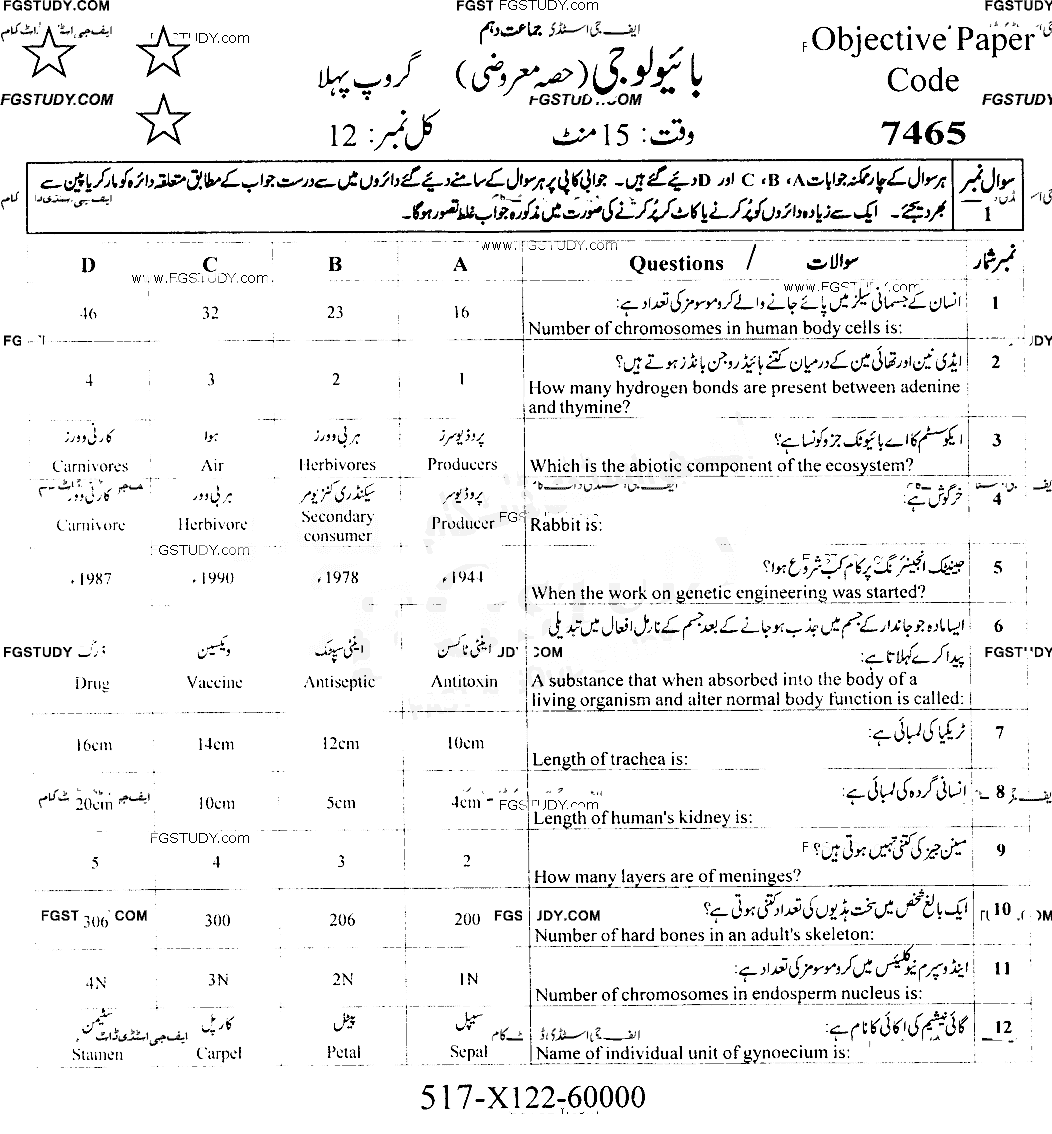 FGSTUDY.COM
FGST FGSTUDY.com
FGSTUDY
ایف جی اسٹڈی جماعت دہم
Objective Paper
Code
7465
بائیولوجی (حصہ معروضی) گروپ پہلا
FGSTUDY.COM
FGSTUDY
وقت: 15 منٹ
کل نمبر: 12
سوال نمبر 1
ہر سوال کے چار ممکنہ جوابات A، B، C اور D دیئے گئے ہیں۔ جوابی کاپی پر ہر سوال کے سامنے دیئے گئے دائروں میں سے درست جواب کے مطابق متعلقہ دائرہ کو مارکر یا پین سے
بھر دیجئے۔ ایک سے زیادہ دائروں کو پُر کرنے یا کاٹ کر پُر کرنے کی صورت میں مذکورہ جواب غلط تصور ہوگا۔
D C B A Questions / سوالات نمبر شمار
www.FGSTUDY.com
1 انسان کے جسمانی سیلز میں پائے جانے والے کروموسومز کی تعداد ہے:
Number of chromosomes in human body cells is:
46 32 23 16
2 ایڈی نین اور تھائی مین کے درمیان کتنے ہائیڈروجن بانڈز ہوتے ہیں؟
How many hydrogen bonds are present between adenine
and thymine?
4 3 2 1
3 ایکوسسٹم کا اے بائیوٹک جزو کونسا ہے؟
Which is the abiotic component of the ecosystem?
کارنی وورز ہوا ہربی وورز پروڈیوسرز
Carnivores Air Herbivores Producers
4 خرگوش ہے:
Rabbit is:
کارنی وور ہربی وور سیکنڈری کنزیومر پروڈیوسر
Carnivore Herbivore Secondary consumer Producer
GSTUDY.com
5 جینیٹک انجینئرنگ پر کام کب شروع ہوا؟
When the work on genetic engineering was started?
1987ء 1990ء 1978ء 1944ء
6 ایسا مادہ جو جاندار کے جسم میں جذب ہو جانے کے بعد جسم کے نارمل افعال میں تبدیلی
پیدا کرے کہلاتا ہے:
A substance that when absorbed into the body of a
living organism and alter normal body function is called:
ڈرگ ویکسین اینٹی سپٹک اینٹی ٹاکسن
Drug Vaccine Antiseptic Antitoxin
7 ٹریکیا کی لمبائی ہے:
Length of trachea is:
16cm 14cm 12cm 10cm
8 انسانی گردہ کی لمبائی ہے:
Length of human's kidney is:
20cm 10cm 5cm 4cm
FGSTUDY.com
9 مینن جیز کی کتنی تہیں ہوتی ہیں؟
How many layers are of meninges?
5 4 3 2
10 ایک بالغ شخص میں سخت ہڈیوں کی تعداد کتنی ہوتی ہے؟
Number of hard bones in an adult's skeleton:
306 300 206 200
11 اینڈوسپرم نیوکلیئس میں کروموسومز کی تعداد ہے:
Number of chromosomes in endosperm nucleus is:
4N 3N 2N 1N
12 گائی نیشیم کی اکائی کا نام ہے:
Name of individual unit of gynoecium is:
سٹیمن کارپل پیٹل سیپل
Stamen Carpel Petal Sepal
517-X122-60000